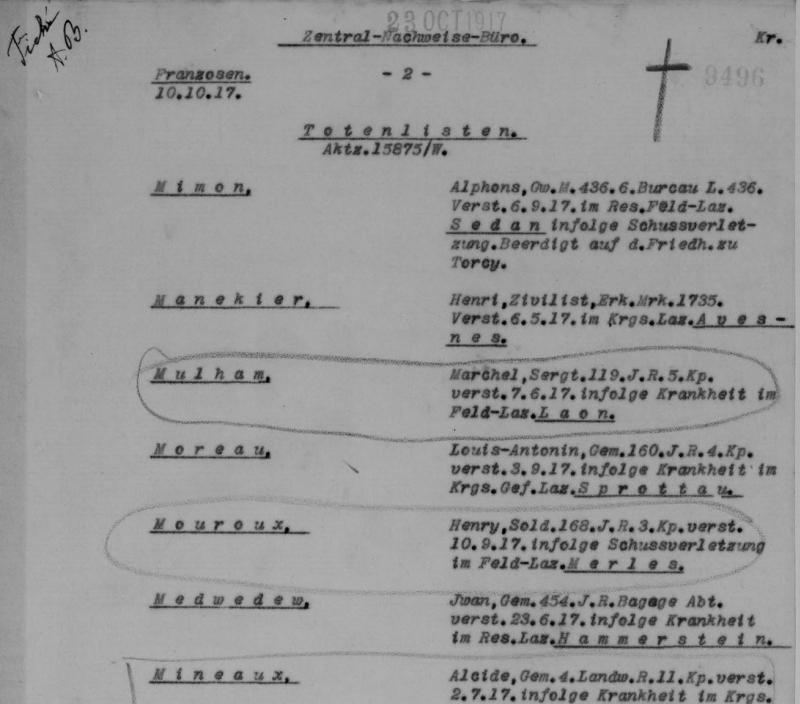 23 OCT 1917
Zentral-Nachweise-Büro.
Kr.
A.B.
Franzosen.
- 2 -
9496
10.10.17.
Totenlisten.
Aktz.15875/W.
Mimon, Alphons, Gw.M.436.6.Bureau L.436.
Verst.6.9.17.im Res.Feld-Laz.
Sedan infolge Schussverlet-
zung.Beerdigt auf d.Friedh.zu
Torcy.
Manekier, Henri,Zivilist,Erk.Mrk.1735.
Verst.6.5.17.im Krgs.Laz.Aves-
nes.
Mulham, Marchel,Sergt.119.J.R.5.Kp.
verst.7.6.17.infolge Krankheit im
Feld-Laz.Laon.
Moreau, Louis-Antonin,Gem.160.J.R.4.Kp.
verst.3.9.17.infolge Krankheit im
Krgs.Gef.Laz.Sprottau.
Mouroux, Henry,Sold.168.J.R.3.Kp.verst.
10.9.17.infolge Schussverletzung
im Feld-Laz.Merles.
Medwedew, Jwan,Gem.454.J.R.Bagage Abt.
verst.23.6.17.infolge Krankheit
im Res.Laz.Hammerstein.
Mineaux, Alcide,Gem.4.Landw.R.11.Kp.verst.
2.7.17.infolge Krankheit im Krgs.